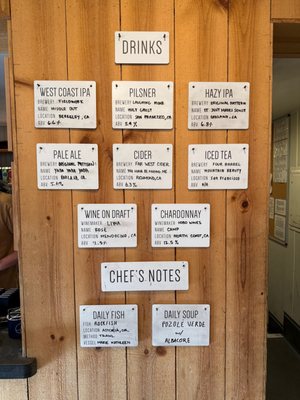 DRINKS
WEST COAST IPA
BREWERY: FIELDWORK
NAME: MIDDLE OUT
LOCATION: BERKELEY, CA
ABV: 6.6%
PILSNER
BREWERY: LAUGHING MONK
NAME: HOLY GHOST
LOCATION: SAN FRANCISCO, CA
ABV:
HAZY IPA
BREWERY: ORIGINAL PATTERN
NAME:
LOCATION: OAKLAND, CA
ABV: 6.8%
PALE ALE
BREWERY: ORIGINAL PATTERN
NAME:
LOCATION: OAKLAND, CA
ABV:
CIDER
BREWERY: FAR WEST CIDER
NAME:
LOCATION: RICHMOND, CA
ABV: 6.3%
ICED TEA
BREWERY: FOUR BARREL
NAME: MOUNTAIN BEAUTY
LOCATION: SAN FRANCISCO
ABV: N/A
WINE ON DRAFT
WINEMAKER:
NAME: ROSÉ
LOCATION: MENDOCINO, CA
ABV:
CHARDONNAY
WINEMAKER: HOBO WINES
NAME: CAMP
LOCATION: NORTH COAST, CA
ABV: 13.5%
CHEF'S NOTES
DAILY FISH
FISH: ROCKFISH
LOCATION: ASTORIA, OR
METHOD: TRAWL
VESSEL: MISS KATHLEEN
DAILY SOUP
POZOLE VERDE
W/
ALBACORE